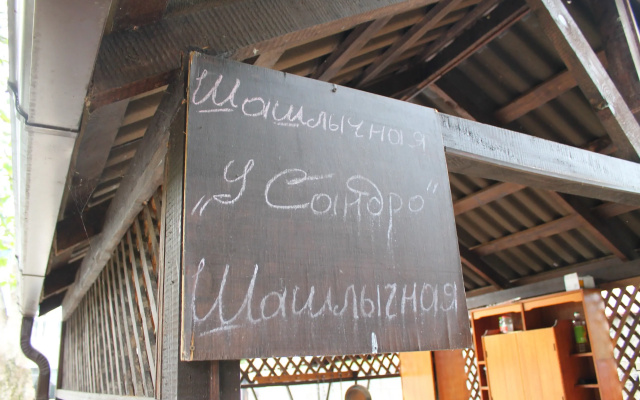 Шашлычная
„У Сандро"
Шашлычная